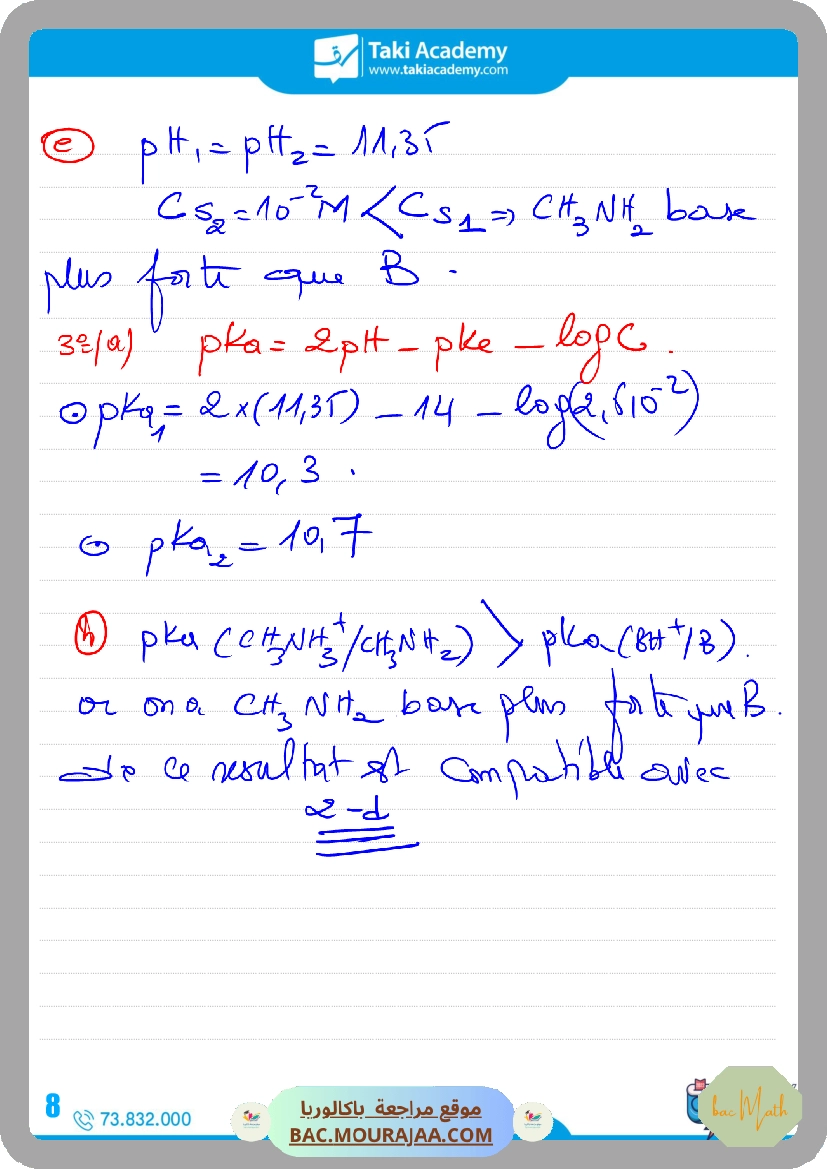 Taki Academy
www.takiacademy.com
e pH₁ = pH₂ = 11,35
C S₂ = 10⁻² M < C S₁ ⇒ CH₃NH₂ base
plus forte que B.
3°/a) pKa = 2pH - pKe - log C.
⊙ pKa₁ = 2 × (11,35) - 14 - log(2,5 10⁻²)
= 10,3.
⊙ pKa₂ = 10,7
pKa (CH₃NH₃⁺/CH₃NH₂) > pKa (BH⁺/B).
or on a CH₃NH₂ base plus forte que B.
ce resultat est compatible avec
2-d
8
73.832.000
موقع مراجعة باكالوريا
BAC.MOURAJAA.COM
bac Math